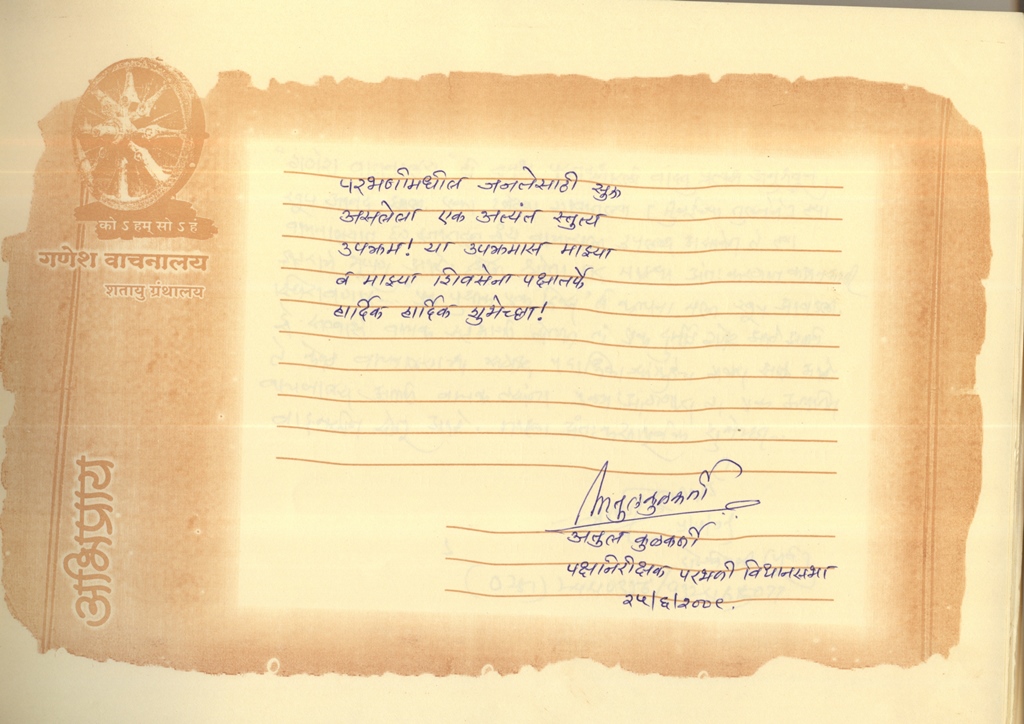 को ऽ हम् सो ऽ हं
गणेश वाचनालय
शतायु ग्रंथालय
अभिप्राय
परभणीमधील जनतेसाठी सुरु
असलेला एक अत्यंत स्तुत्य
उपक्रम! या उपक्रमास माझ्या
व माझ्या शिवसेना पक्षातर्फे
हार्दिक हार्दिक शुभेच्छा!
अतुल कुळकर्णी
पक्षनिरीक्षक परभणी विधानसभा
२५/६/२००९.